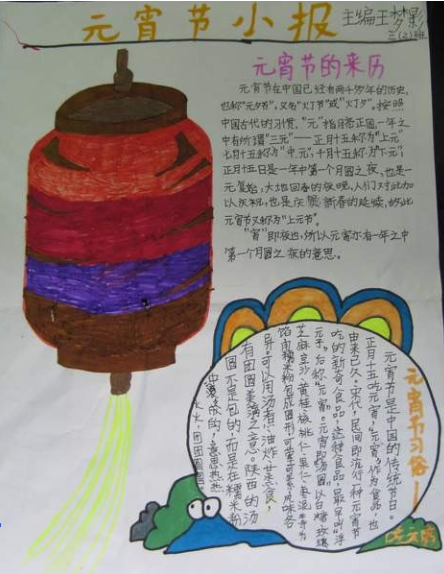 元宵节小报
主编王梦影
三(2)班
元宵节的来历
元宵节在中国已经有两千多年的历史,
也称"元夕节",又名"灯节"或"灯夕"。按照
中国古代的习惯,"元"指月亮正圆,一年之
中有所谓"三元"——正月十五称为"上元"
七月十五称为"中元",十月十五称为"下元",
正月十五日是一年中第一个月圆之夜,也是一
元复始,大地回春的夜晚,人们对此加
以庆祝,也是庆贺新春的延续,故此
元宵节又称为"上元节"。
"宵"即夜也,所以元宵亦有一年之中
第一个月圆之夜的意思。
元宵节习俗
元宵节是中国的传统节日。
正月十五吃元宵,"元宵"作为食品,也
由来已久。宋代,民间即流行一种元宵节
吃的新奇食品,这种食品,最早叫"浮
元子"后称"元宵"。元宵即汤圆以白糖玫瑰
芝麻豆沙黄桂核桃仁果仁枣泥等为
馅用糯米粉包成圆形可荤可素风味各
异,可以用汤煮,油炸,蒸食,
有团圆美满之意。陕西的汤
圆不是包的,而是在糯米粉
中滚成的,意思热热
火火,团团圆圆